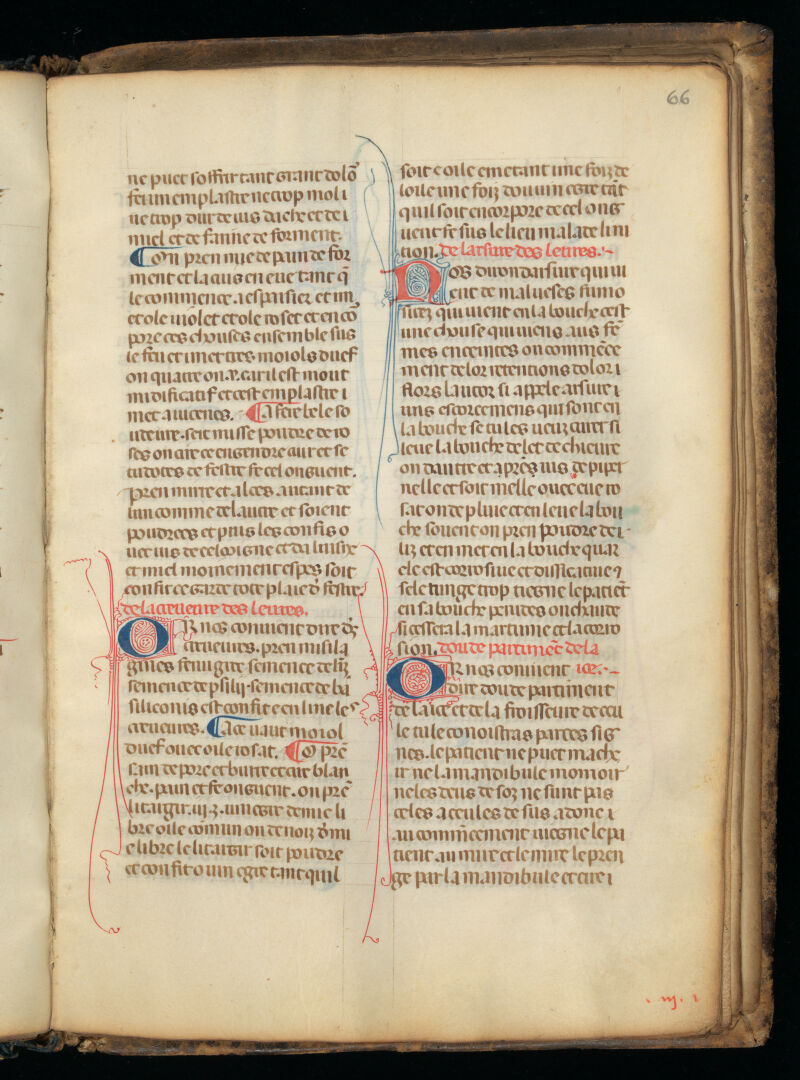 66
ne puet soffrir tant grant dolõ
fei un emplastre ne trop mol i
ne trop dur de ius dache et de i
miel et de farine de forment.
On pren mie de pain de for
ment et la cuis en eue tant q̃
le commence a espaisier et im
et ole violet et ole roset et en cõ
pore ces chouses ensemble sus
le feu et imet tres moiols duef
on quatre on .v. car il est mout
midificatif et cest emplastre i
met a uicenes. A fere bele so
udeure. seit misse poudre de ro
ses on aire ce engendre aur et se
tu dotes de festre fe cel onguent.
pren mirre et aloes autant de
lun comme delautre et soient
poudrees et puis les confis o
uec ius de
et miel moinement espes soit
confit ce garde tote plaie d festre
de la creueure des leures.
Or nos conuient dire des
creueures. pren musila
gines fenugrec semence de lin
semence de psilij. semence de ba
siliconis est confite en lui les
creueures. A ce uaut moiol
duef ouec oile rosat. O prẽ
sain de porc et burre et cire blan
che. pain et fe onguent. on prẽ
litargir. iij. ȝ. uin egre demie li
bre oile comun on de noiz dmi
e libre le litargir soit poudre
et confit o uin egre tant quil
soit et oile en metant une foiz de
loile une foiz dou uin egre tãt
quil soit encorpore de cel ong
uent fe sus le lieu malade lini
tion. de larsure des leures.
Nos diron darsure qui ui
ent de malueses fumo
sitez qui uient en la bouche cest
une chouse qui uiens aus fe
mes enceintes on commẽce
ment de lor retentions dolor i
flors lautor si apele arsure i
uns escorcemens qui sont en
la bouche se tu les ueuz curer si
leue la bouche de let de chieure
on dautre et aprés ius de pipri
nelle et soit melle ouec eue ro
sat on de pluie et en leue la bou
che souent on pren poudre de i
liz et en met en la bouche quar
ele est corrosiue et dissicatiue ⁊
se le runge trop tiegne le paciẽt
en sa bouche penites on chaute
si cessera la martume et la corro
sion. dou departimẽt de la
Or nos conuient ioe.
dire dou departiment
de la ioe et de la froisseure de ceu
le tu le conoistras par ces sig
nes. le patient ne puet mache
ir ne la mandibule mouoir
ne les dens de soz ne sunt pas
celes a ceules de sus adone i
au commẽcement tiegne le pa
tient au mire et le mire le pren
ge par la mandibule et tire i